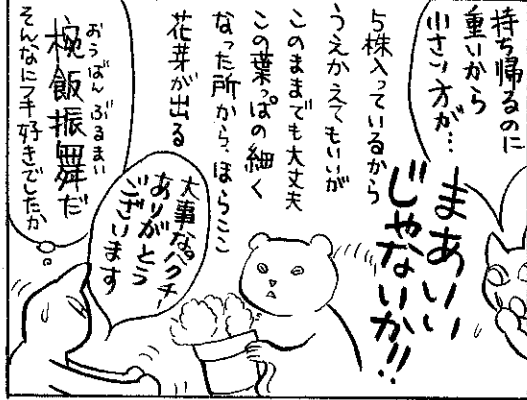 持ち帰るのに
重いから
小さい方が…
まあいい
じゃないか!!
5株入っているから
うえかえてもいいが
このままでも大丈夫
この葉っぱの細く
なった所から、ほらここ
花芽が出る
大事なパクチー
ありがとう
ございます
おうばんぶるまい
椀飯振舞だ
そんなに好きでしたか